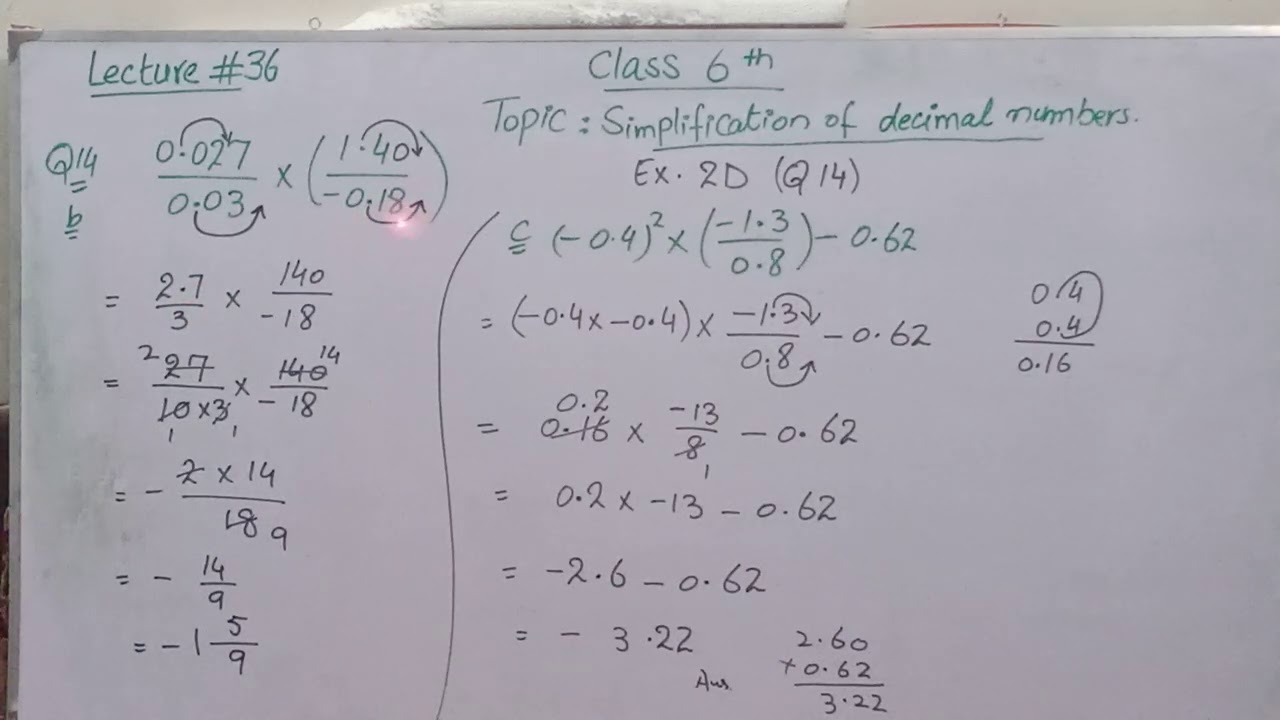 Lecture #36
Class 6th
Topic: Simplification of decimal numbers.
Ex. 2D (Q14)
Q14
b
0.027/0.03 × (1.40/-0.18)
= 2.7/3 × 140/-18
= 27/10×3 × 140/-18
2 1 1 14
= - 2 × 14/18 9
= - 14/9
= -1 5/9
c (-0.4)² × (-1.3/0.8) - 0.62
= (-0.4 × -0.4) × -1.3/0.8 - 0.62
0.4
0.4
0.16
0.2
= 0.16 × -13/8 - 0.62
1
= 0.2 × -13 - 0.62
= -2.6 - 0.62
= - 3.22
Ans
2.60
+0.62
3.22